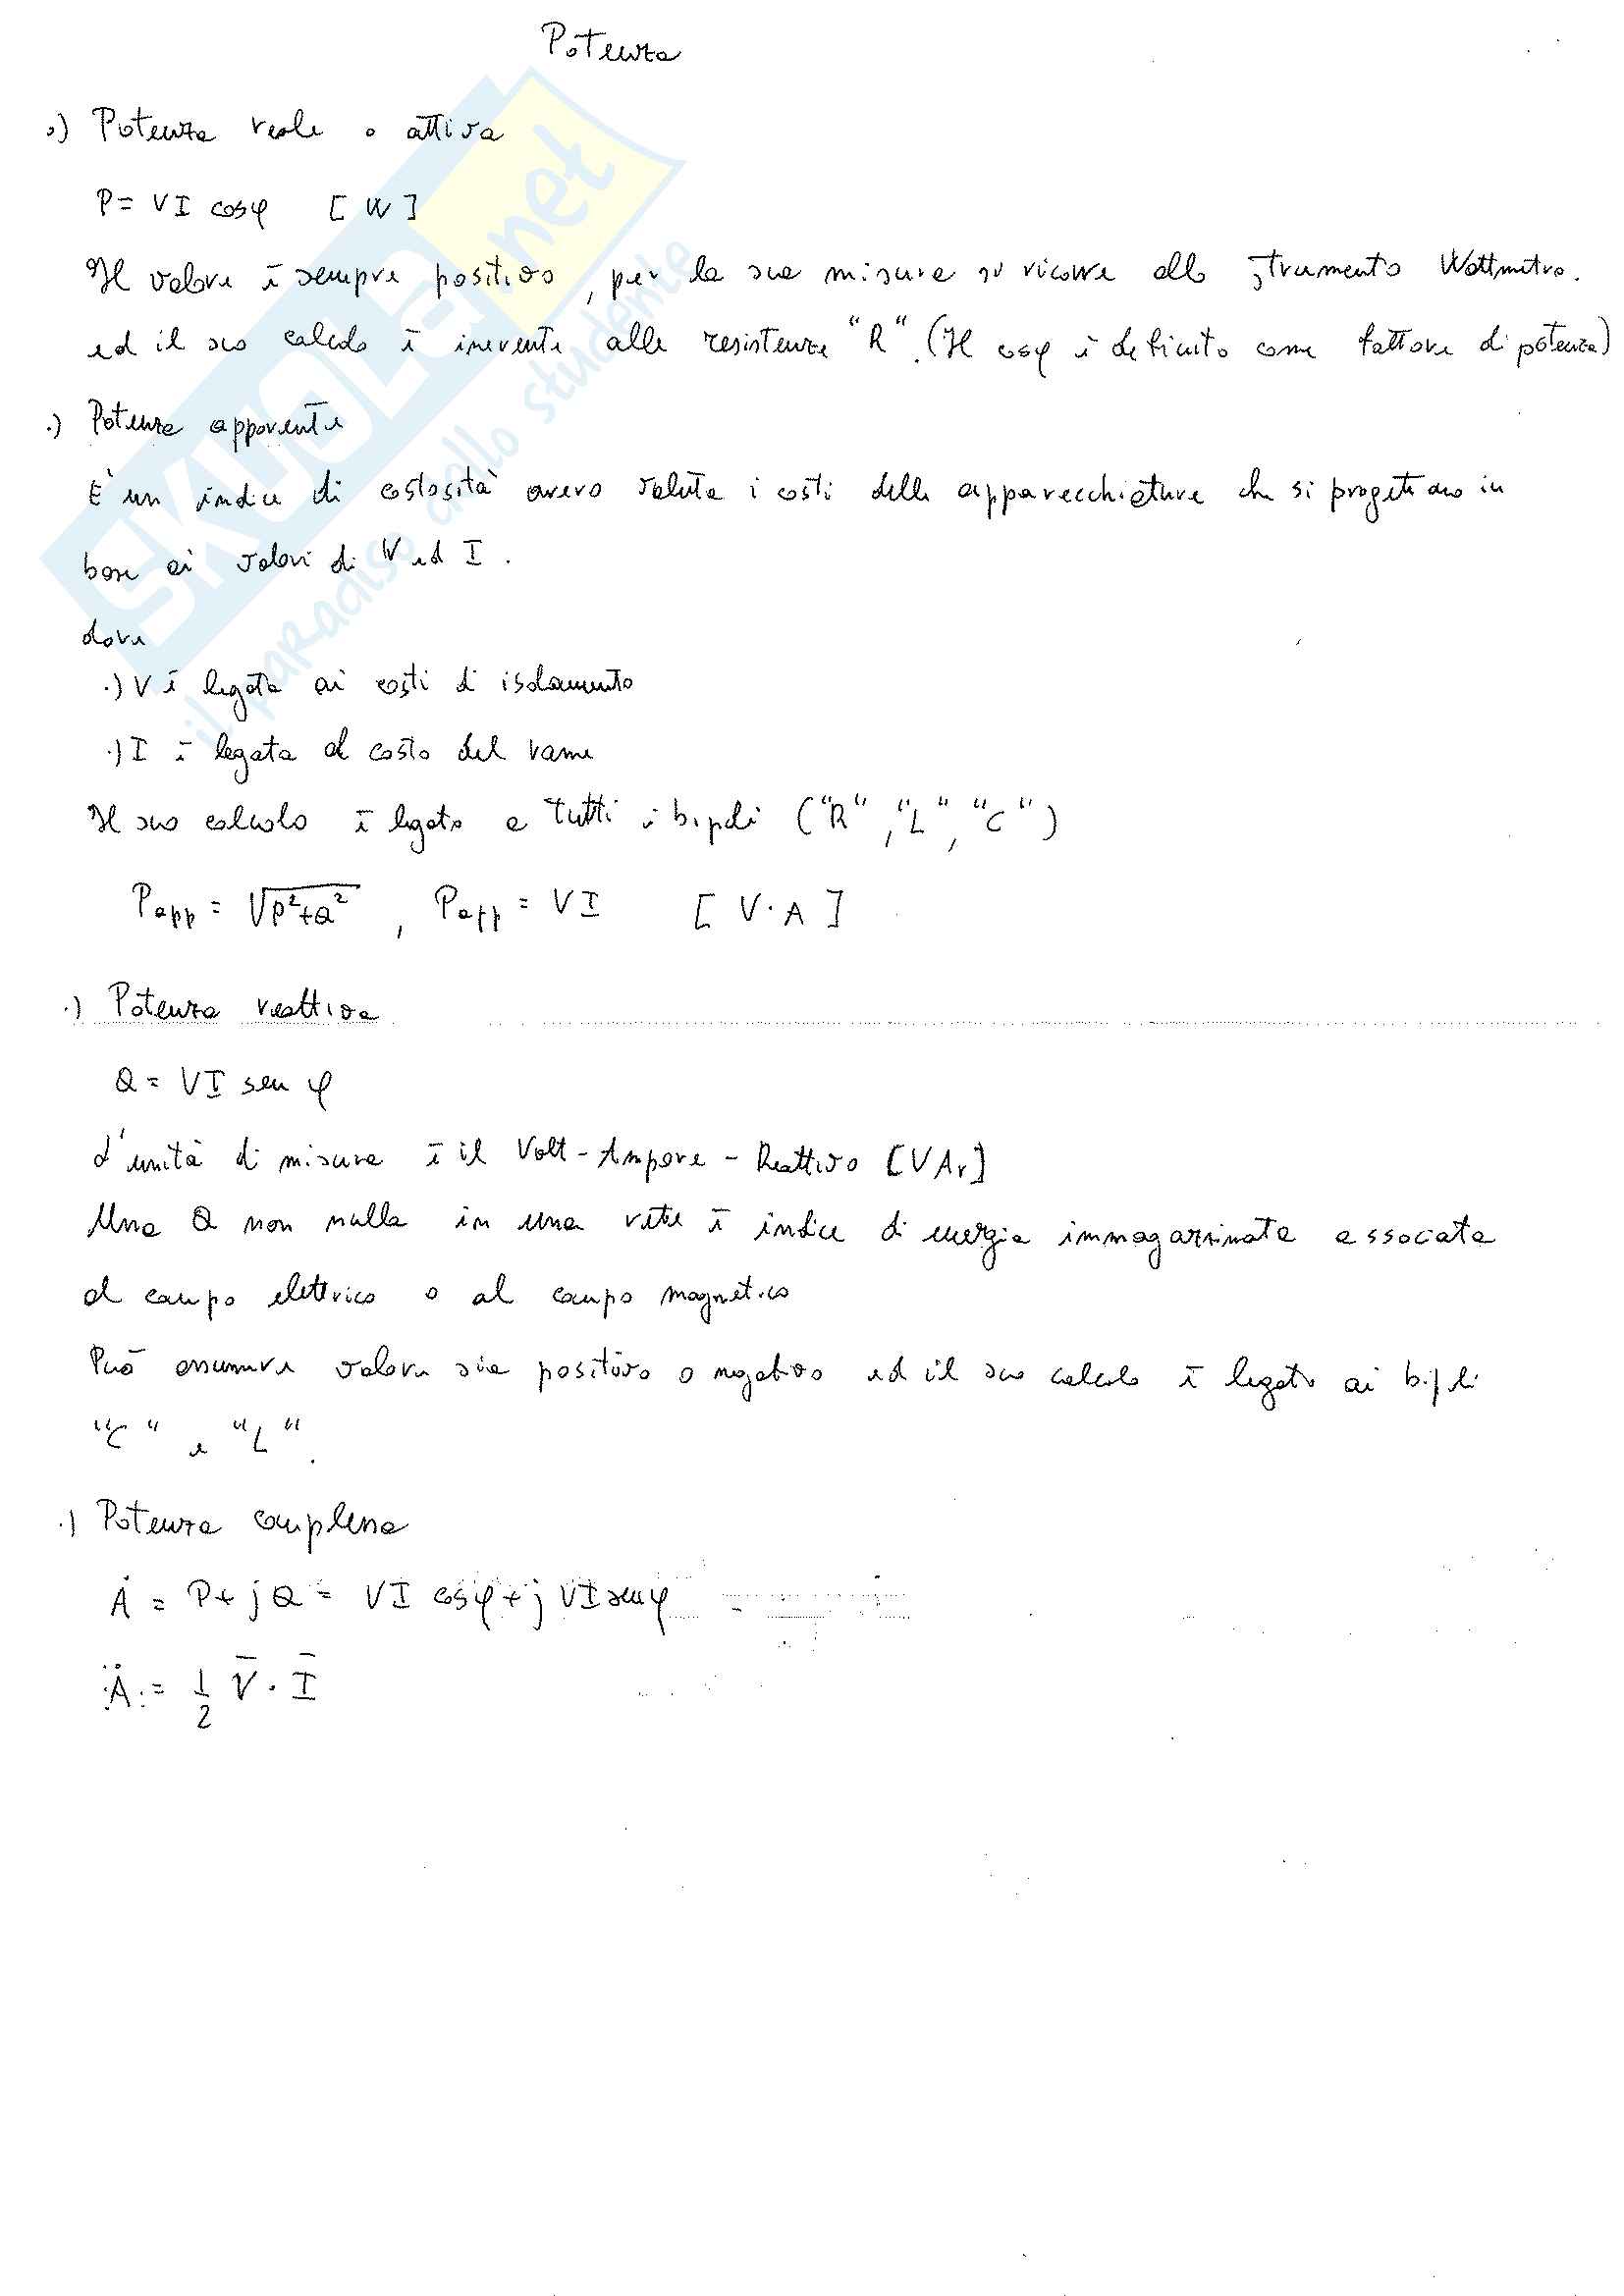 Potenza
.) Potenza reale o attiva
P = VI cosφ [W]
Il valore è sempre positivo, per la sua misura si ricorre allo strumento Wattmetro.
ed il suo calcolo è inerente alle resistenze "R". (Il cosφ è definito come fattore di potenza)
.) Potenza apparente
E' un indice di costosità ovvero valuta i costi delle apparecchiature che si progettano in
base ai valori di V ed I.
dove
.) V è legata ai costi di isolamento
.) I è legata al costo del rame
Il suo calcolo è legato a tutti i bipoli ("R", "L", "C")
Papp = √P²+Q² , Papp = VI [V·A]
.) Potenza reattiva
Q = VI sen φ
L'unità di misura è il Volt-Ampere-Reattivo [VAr]
Una Q non nulla in una rete è indice di energia immagazzinata associata
al campo elettrico o al campo magnetico
Può assumere valore sia positivo o negativo ed il suo calcolo è legato ai bipoli
"C" e "L".
.) Potenza complessa
Ȧ = P + jQ = VI cosφ + j VI senφ
Ȧ = 1/2 V̅ · I̅
SKUOLA.net
il paradiso dello studente